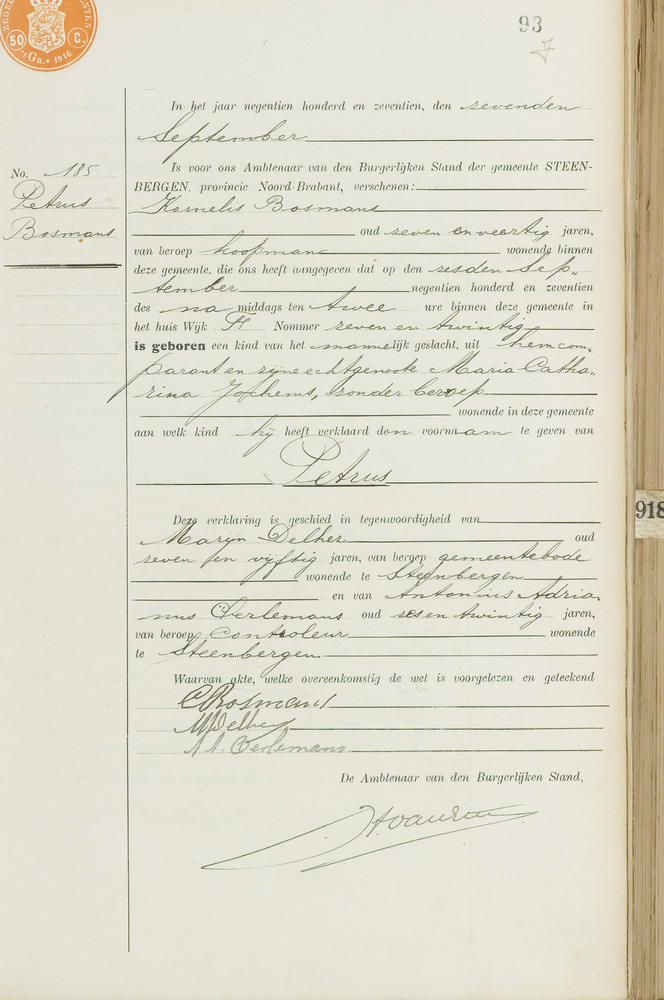 50 C.
'sGR. * 1916
93
In het jaar negentien honderd en zeventien, den zevenden
September
No. 185
Petrus
Bosmans
Is voor ons Ambtenaar van den Burgerlijken Stand der gemeente STEEN-
BERGEN, provincie Noord-Brabant, verschenen:
Kornelis Bosmans
oud zeven en veertig jaren,
van beroep koopman wonende binnen
deze gemeente, die ons heeft aangegeven dat op den zesden Sep-
tember negentien honderd en zeventien
des na middags ten twee ure binnen deze gemeente in
het huis Wijk H Nommer zeven en twintig
is geboren een kind van het mannelijk geslacht, uit hem com-
parant en zijne echtgenoote Maria Catha-
rina Jochems, zonder beroep
wonende in deze gemeente
aan welk kind hij heeft verklaard den voornaam te geven van
Petrus
Deze verklaring is geschied in tegenwoordigheid van
Marijn Delhez oud
zeven en vijftig jaren, van beroep gemeentebode
wonende te Steenbergen
en van Antonius Adria-
nus Oerlemans oud zes en twintig jaren,
van beroep Controleur wonende
te Steenbergen
Waarvan akte, welke overeenkomstig de wet is voorgelezen en geteekend
C Bosmans
M Delhez
A A. Oerlemans
De Ambtenaar van den Burgerlijken Stand,
918